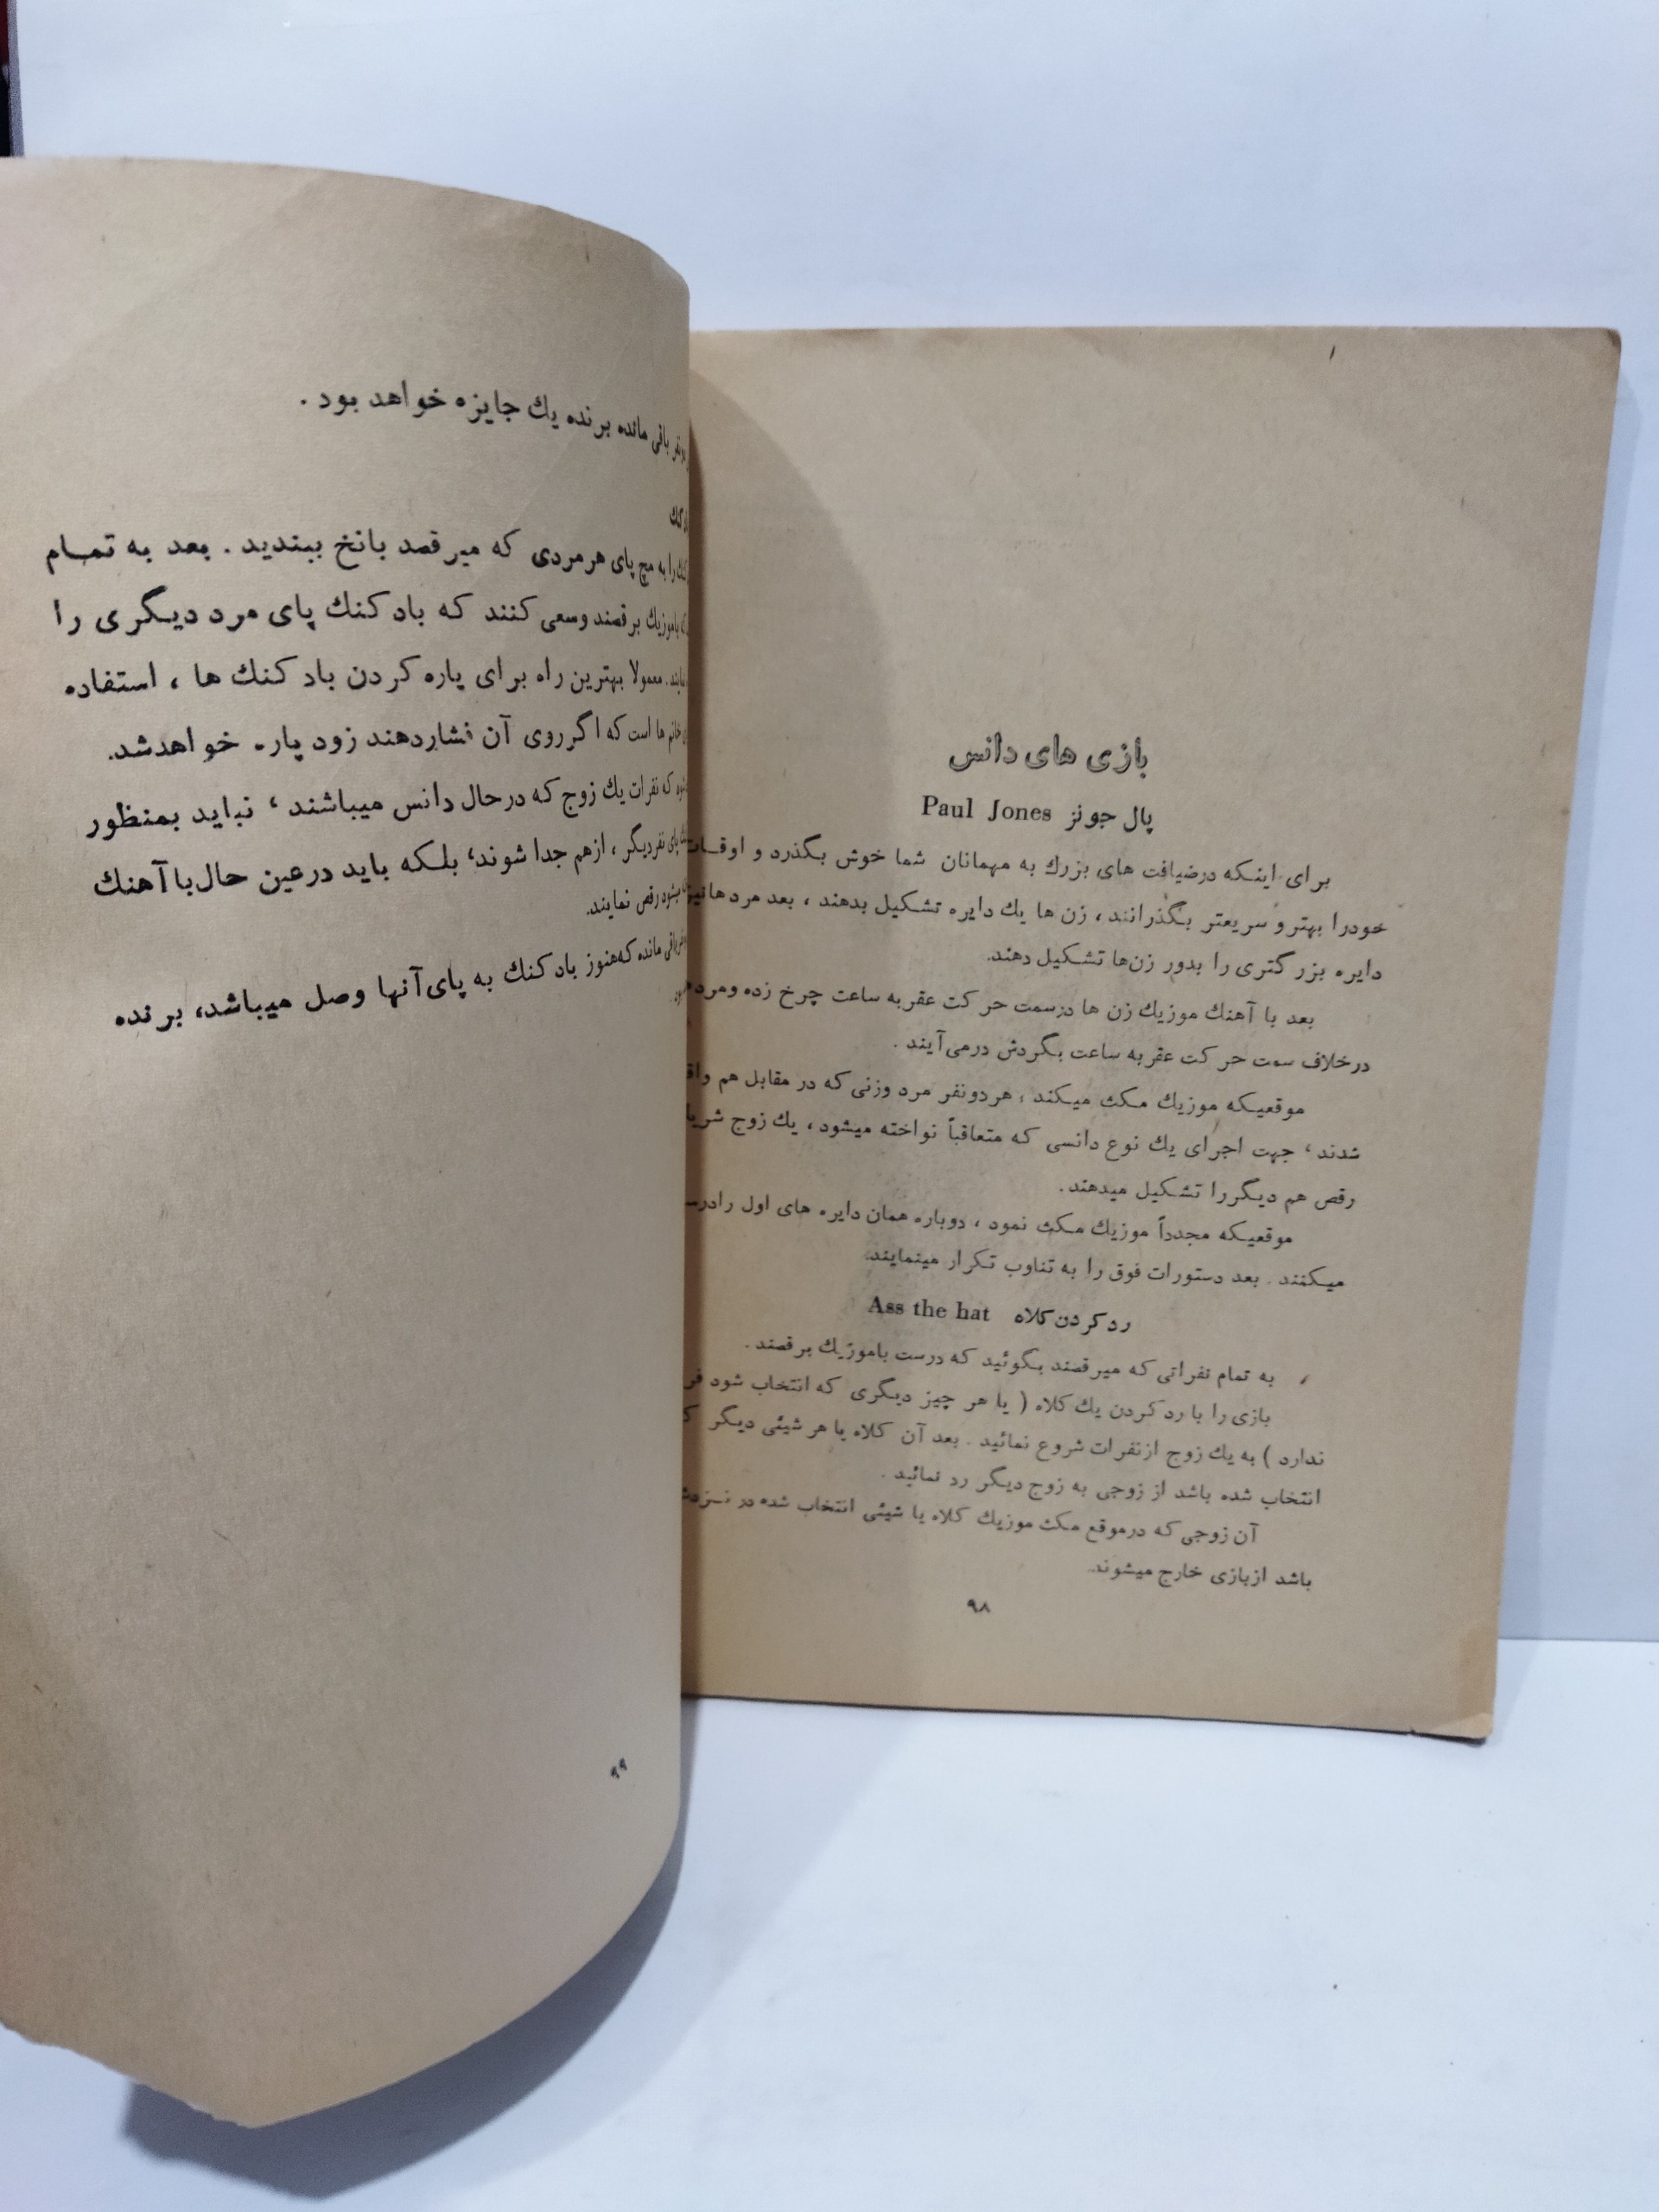 بازی های دانس
پال جونز Paul Jones
برای اینکه درضیافت های بزرك به مهمانان شما خوش بگذرد و اوقات
خودرا بهتر و سریعتر بگذرانند ، زن ها یك دایره تشکیل بدهند ، بعد مردها نیز
دایره بزرگتری را بدور زن‌ها تشکیل دهند.
بعد با آهنك موزیك زن ها درسمت حرکت عقربه ساعت چرخ زده ومردها
درخلاف سمت حرکت عقربه ساعت بگردش درمی‌آیند .
موقعیکه موزیك مکث میکند ، هردونفر مرد وزنی که در مقابل هم
شدند ، جهت اجرای یك نوع دانسی که متعاقباً نواخته میشود ، یك زوج
رقص هم دیگررا تشکیل میدهند.
موقعیکه مجدداً موزیك مکث نمود ، دوباره همان دایره های اول را
میکنند . بعد دستورات فوق را به تناوب تکرار مینمایند.
ردکردن کلاه Ass the hat
به تمام نفراتی که میرقصند بگوئید که درست باموزیك برقصند .
بازی را با ردکردن یك کلاه ( یا هر چیز دیگری که انتخاب شود
ندارد ) به یك زوج ازنفرات شروع نمائید . بعد آن کلاه یا هر شیئی دیگر
انتخاب شده باشد از زوجی به زوج دیگر رد نمائید .
آن زوجی که درموقع مکث موزیك کلاه یا شیئی انتخاب شده در
باشد ازبازی خارج میشوند.
۹۸
باقی مانده برنده یك جایزه خواهد بود .
را به مچ پای هرمردی که میرقصد بانخ ببندید . بعد به تمام
باموزیك برقصند وسعی کنند که بادکنك پای مرد دیگری را
معمولا بهترین راه برای پاره کردن بادکنك ها ، استفاده
ها است که اگرروی آن فشاردهند زود پاره خواهدشد.
که نفرات یك زوج که درحال دانس میباشند ، نباید بمنظور
پای نفردیگر ، ازهم جدا شوند، بلکه باید درعین حال با آهنك
رقص نمایند.
باقی مانده که‌هنوز بادکنك به پای آنها وصل میباشد، برنده
۹۹